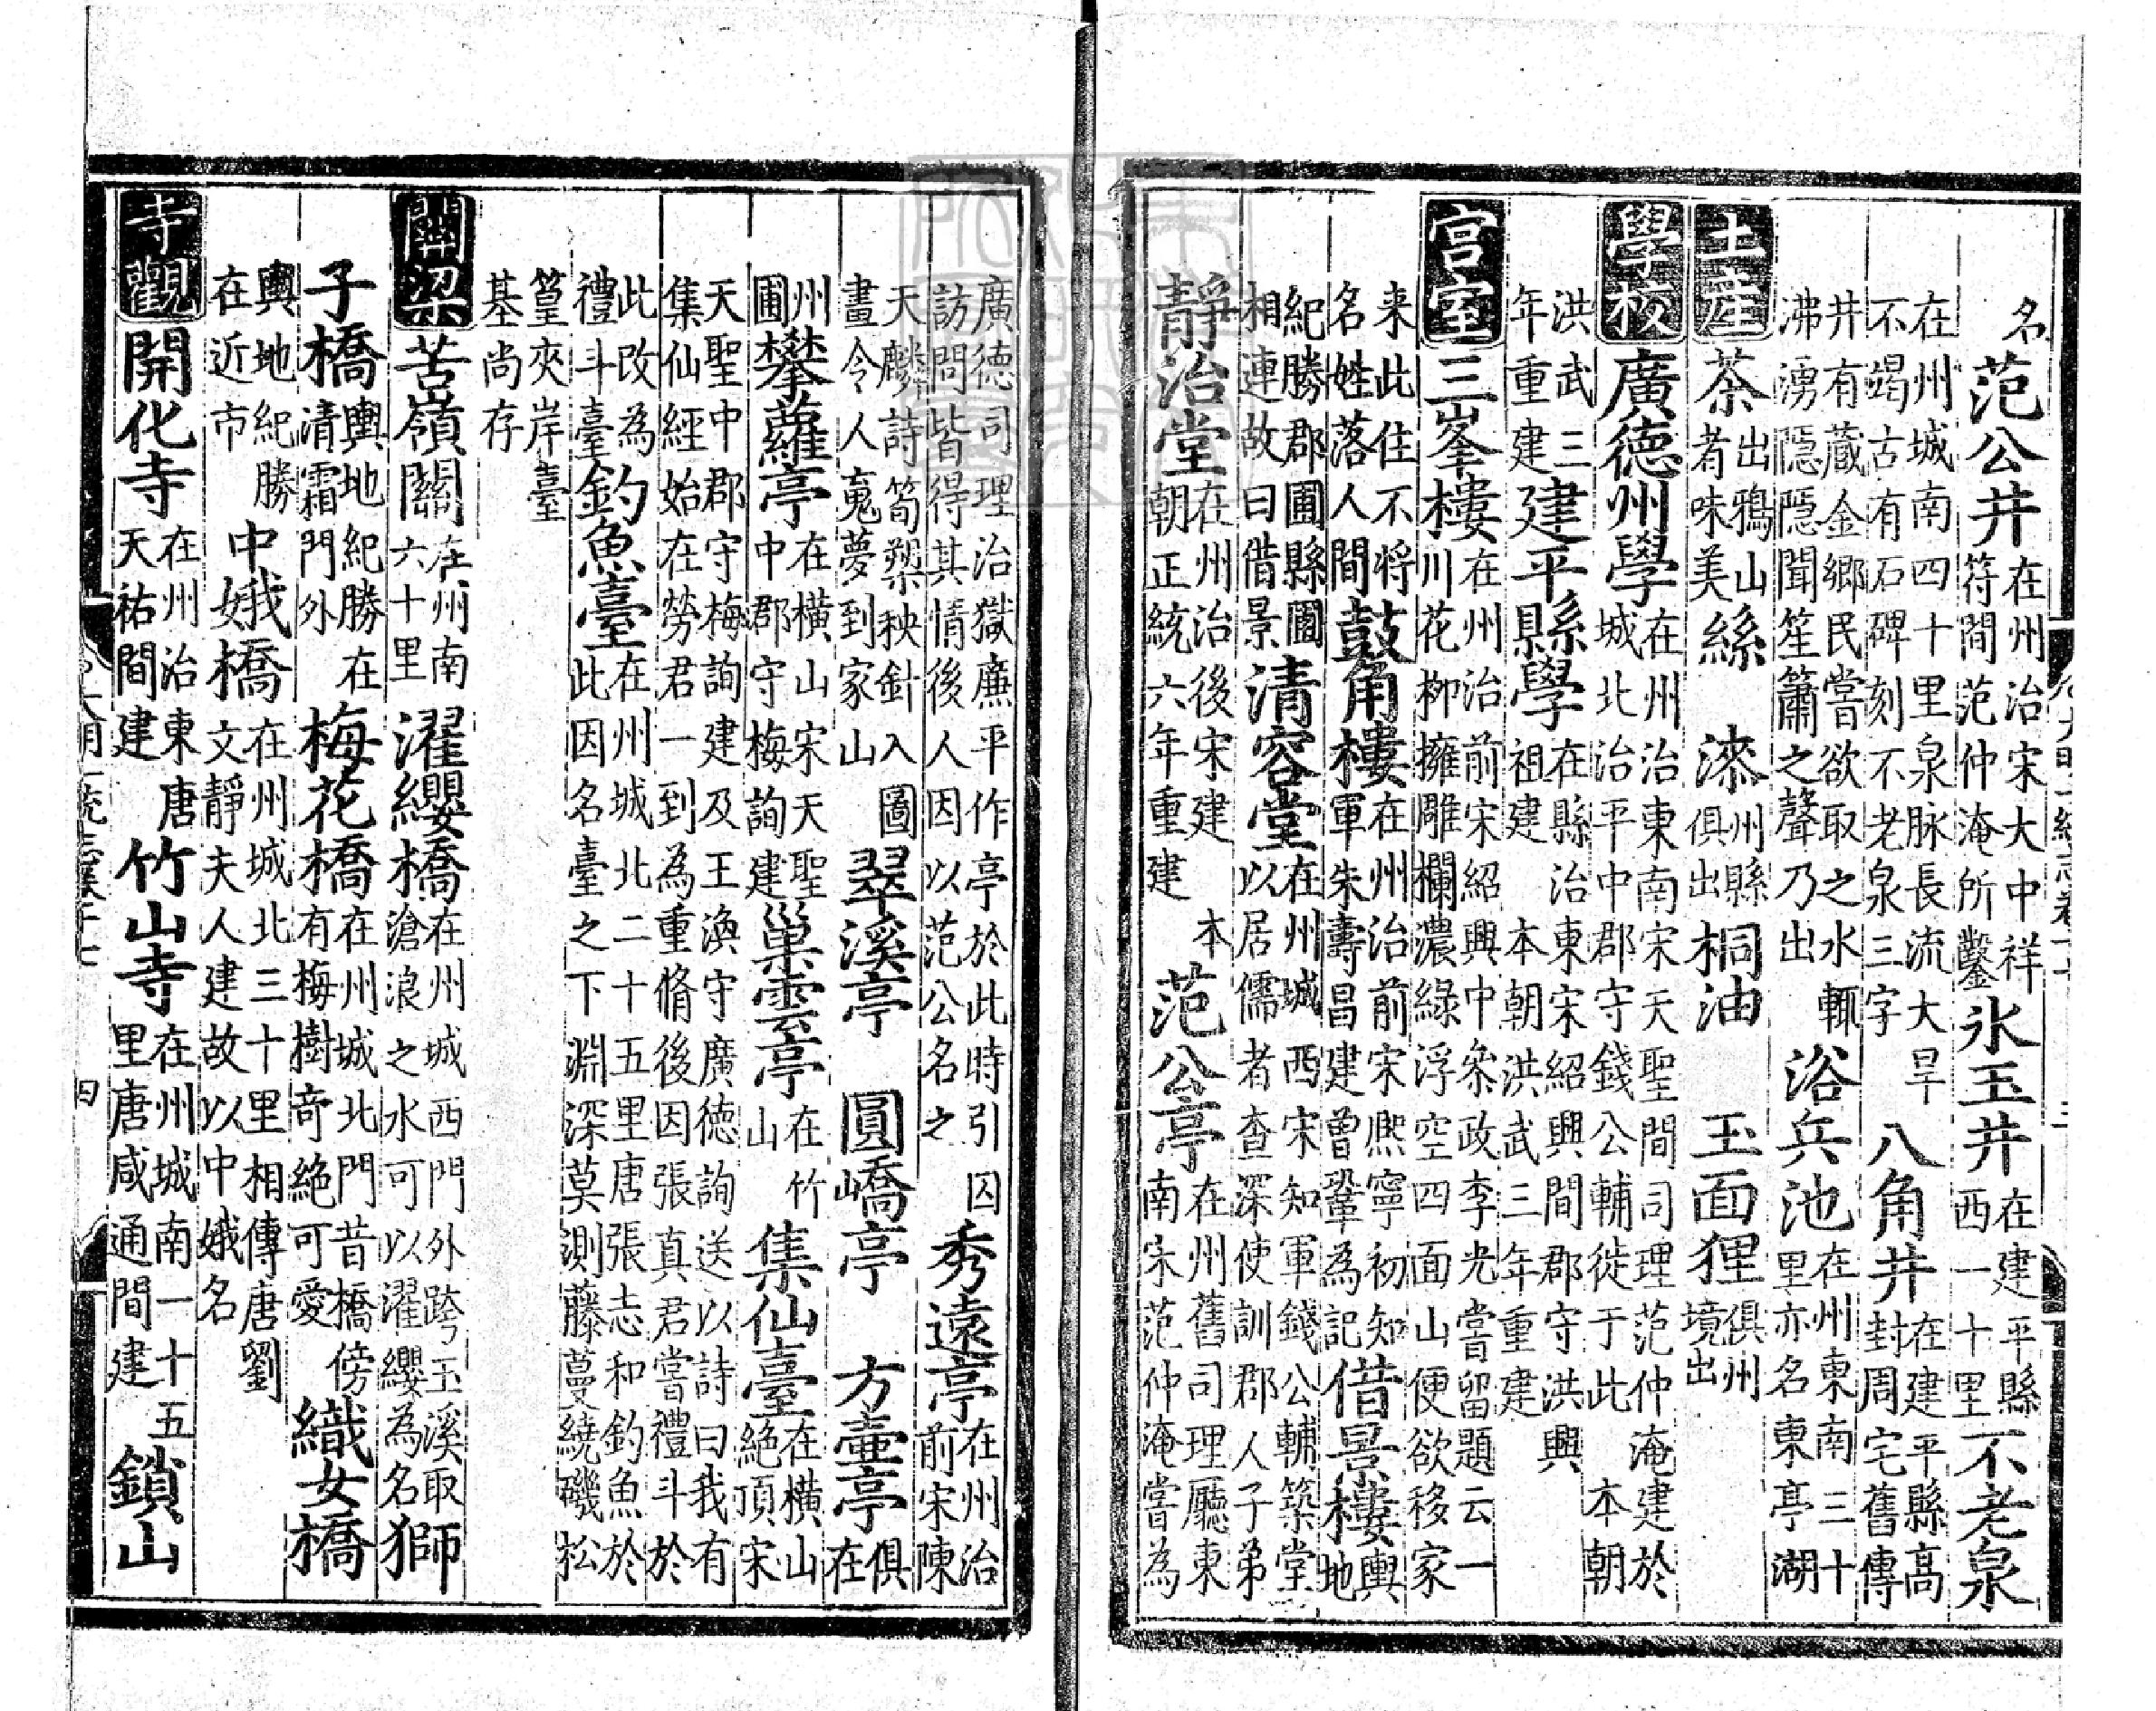 名范公井在州治宋大中祥符間范仲淹所鑿氷玉井在建平縣西一十里不老泉
在州城南四十里泉脉長流大旱不竭古有石碑刻不老泉三字八角井在建平縣高封周宅舊傳
井有藏金鄉民嘗欲取之水輒沸湧隠隠聞笙簫之聲乃出浴兵池在州東南三十里亦名東亭湖
土産茶出鴉山者味美絲漆州縣俱出桐油玉面狸俱州境出
學校廣德州學在州治東南宋天聖間司理范仲淹建於城北治平中郡守錢公輔徙于此本朝
洪武三年重建建平縣學在縣治東宋紹興間郡守洪興祖建本朝洪武三年重建
宫室三峯樓在州治前宋紹興中叅政李光嘗留題云一川花柳擁雕欄濃緑浮空四面山便欲移家
来此住不將名姓落人間鼓角樓在州治前宋熈寧初知軍朱壽昌建曾鞏為記借景樓輿地
紀勝郡圃縣圃相連故曰借景清容堂在州城西宋知軍錢公輔築堂以居儒者查深使訓郡人子弟
靜治堂在州治後宋建本朝正統六年重建范公亭在州舊司理廳東南宋范仲淹嘗為
廣德司理治獄廉平作亭於此時引囚訪問皆得其情後人因以范公名之秀遠亭在州治前宋陳
天麟詩筍槊秧針入圖畫令人嵬夢到家山翠溪亭圓嶠亭方壷亭俱在
州圃攀蘿亭在横山宋天聖中郡守梅詢建巢雲亭在竹山集仙臺在横山絶頂宋
天聖中郡守梅詢建及王渙守廣德詢送以詩曰我有集仙經始在勞君一到為重脩後因張真君嘗禮斗於
此改為禮斗臺釣魚臺在州城北二十五里唐張志和釣魚於此因名臺之下淵深莫測藤蔓繞磯松
篁夾岸臺基尚存
關梁苦嶺關在州南六十里濯纓橋在州城西門外跨玉溪取滄浪之水可以濯纓為名獅
子橋輿地紀勝在清霜門外梅花橋在州城北門昔橋傍有梅樹竒絶可愛織女橋
輿地紀勝在近市中娥橋在州城北三十里相傳唐劉文靜夫人建故以中娥名
寺觀開化寺在州治東唐天祐間建竹山寺在州城南一十五里唐咸通間建鎖山